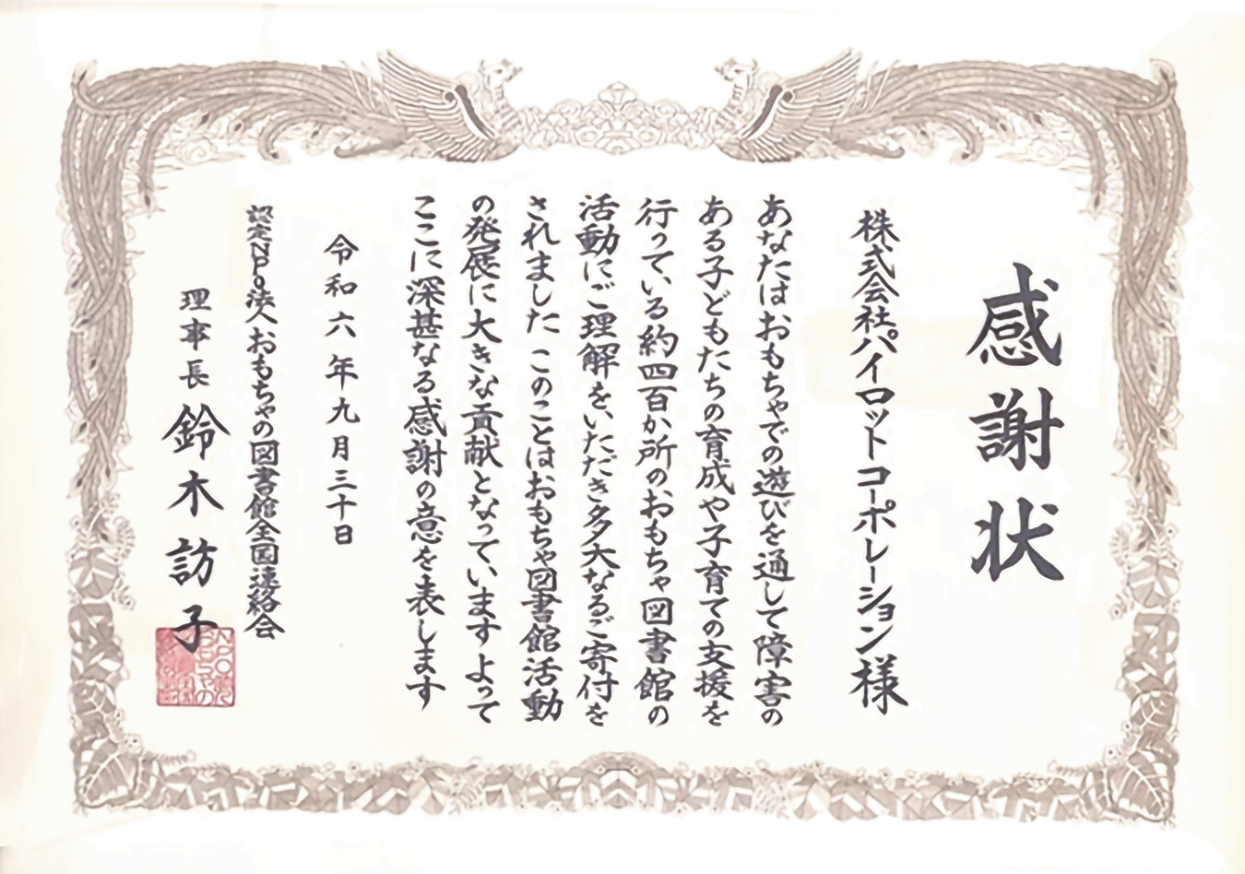 感謝状
株式会社パイロットコーポレーション様
あなたはおもちゃでの遊びを通して障害の
ある子どもたちの育成や子育ての支援を
行っている約四百か所のおもちゃ図書館の
活動にご理解をいただき多大なるご寄付を
されました このことはおもちゃ図書館活動
の発展に大きな貢献となっています よって
ここに深甚なる感謝の意を表します
令和六年九月三十日
認定NPO法人おもちゃの図書館全国連絡会
理事長 鈴木訪子